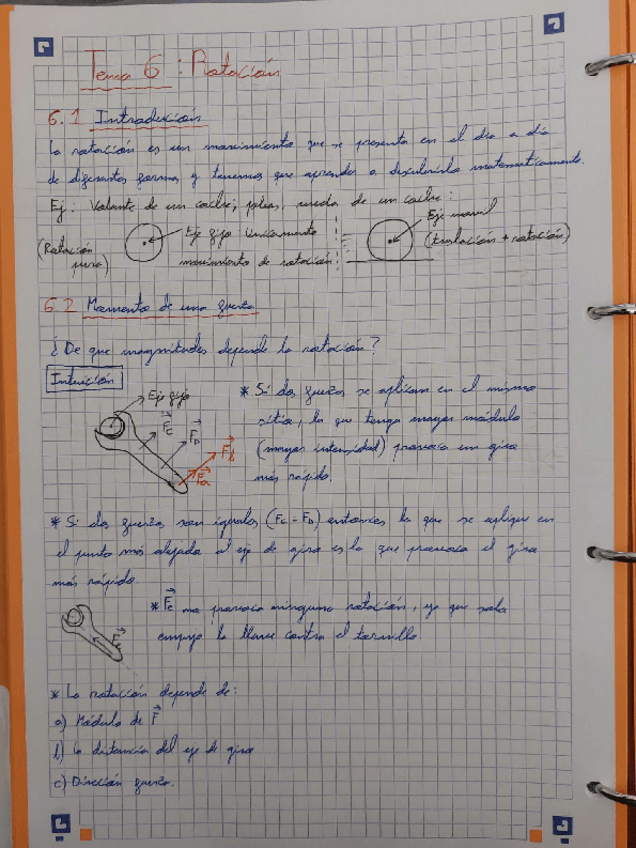 Tema 6: Rotación
6.1 Introducción
La rotación es un movimiento que se presenta en el día a día
de diferentes formas y tenemos que aprender a describirlo matemáticamente.
Ej: Volante de un coche, poleas, rueda de un coche:
(Rotación pura)
Eje fijo Únicamente
movimiento de rotación
Eje móvil
(traslación + rotación)
6.2 Momento de una fuerza
¿De que magnitudes depende la rotación?
Intuición
Eje fijo
Fc
FD
Fb
Fa
* Si dos fuerzas se aplican en el mismo
sitio, la que tenga mayor módulo
(mayor intensidad) provoca un giro
más rápido.
* Si dos fuerzas son iguales (Fc = FD) entonces la que se aplique en
el punto más alejado al eje de giro es la que provoca el giro
más rápido.
Fe
* Fe no provoca ninguna rotación, ya que solo
empuja la llave contra el tornillo.
* La rotación depende de:
a) Módulo de F
b) La distancia del eje de giro
c) Dirección fuerza.